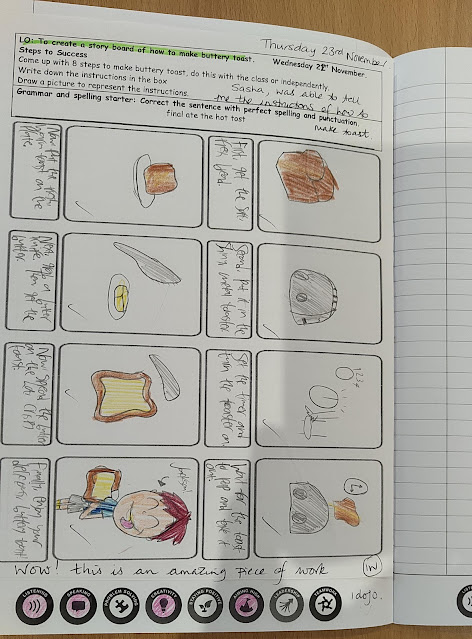 LO: To create a story board of how to make buttery toast.
Thursday 23rd November
Steps to Success
Wednesday 22nd November.
Come up with 8 steps to make buttery toast, do this with the class or independently.
Write down the instructions in the box
Draw a picture to represent the instructions.
Sasha, was able to tell
me the instructions of how to
make toast
Grammar and spelling starter: Correct the sentence with perfect spelling and punctuation.
final ate the hot tost
First, get the
bread.
Second, put it in the
toaster.
Set the timer and
turn the toaster on
Wait for the toast
to pop and take it
out.
Now put the
toast on the
plate.
Next,
butter.
Now spread the butter
on the
toast.
Finally enjoy your
delicious buttery toast
1 2 3 4
Wow! this is an amazing piece of work
IW
1 dojo.
LISTENING
SPEAKING
PROBLEM SOLVING
CREATIVITY
STAYING POSITIVE
AIMING HIGH
LEADERSHIP
TEAMWORK